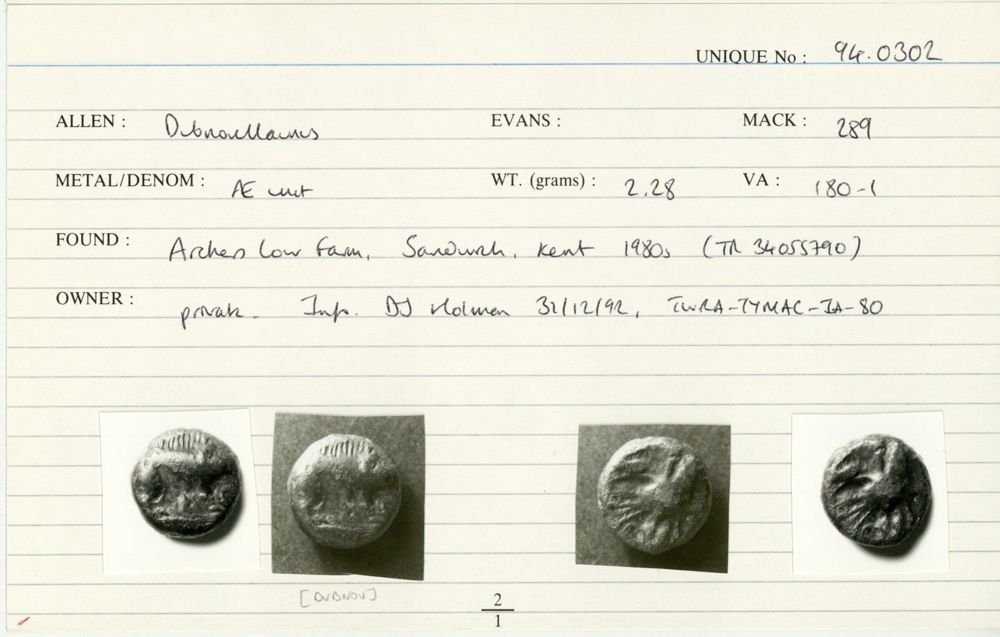 UNIQUE No : 94.0302
ALLEN : Dubnovellaunus EVANS : MACK : 289
METAL/DENOM : Æ unit WT. (grams) : 2.28 VA : 180-1
FOUND : Archers Low Farm, Sandwich, Kent 1980s (TR 34055790)
OWNER : private. Inf. DJ Holman 31/12/92, TWRA-TYMAC-IA-80
[DVBNOV]
2
1